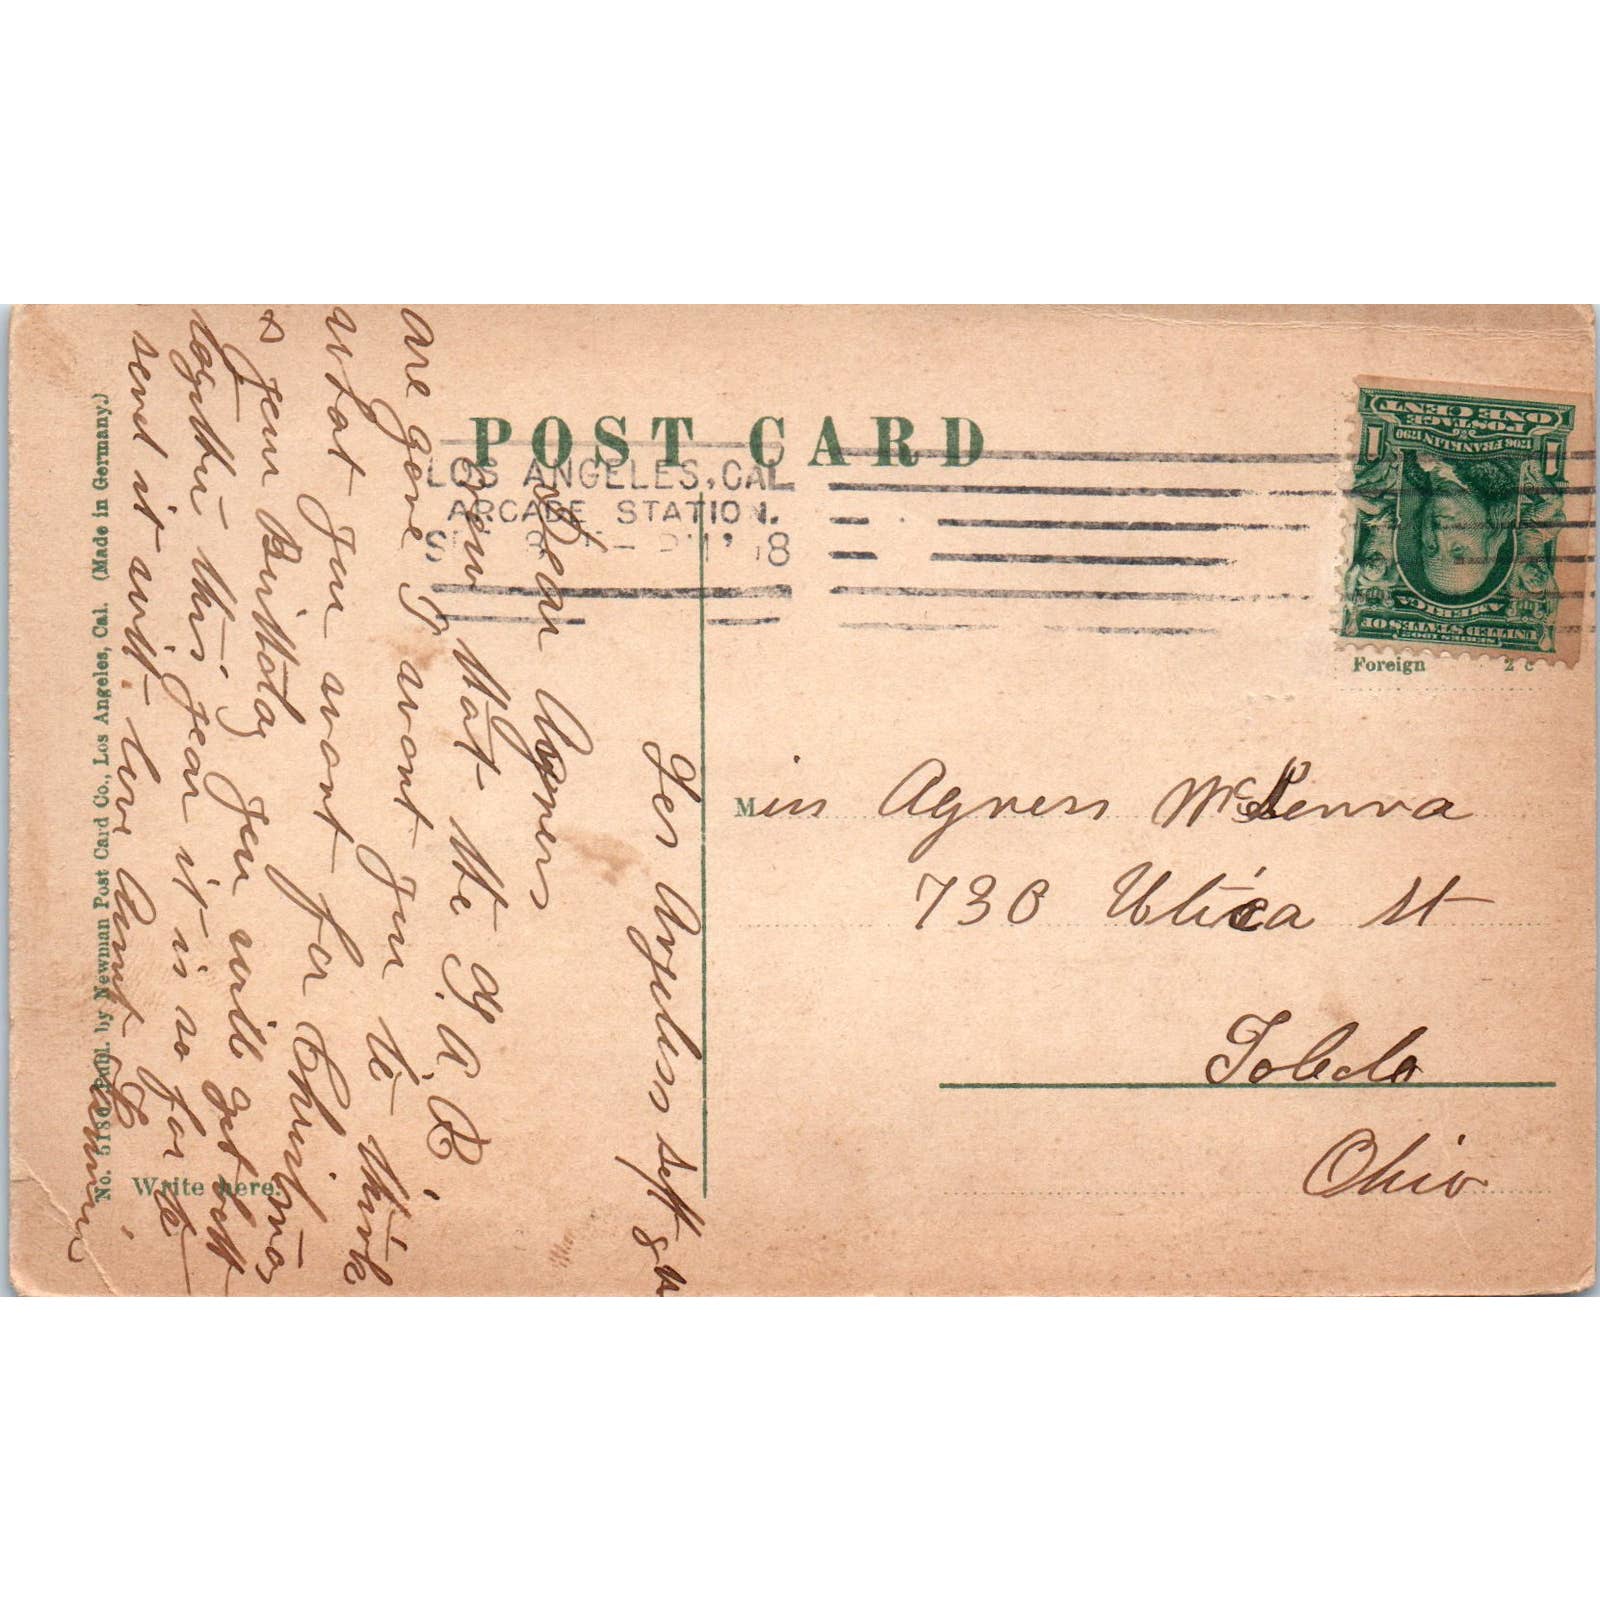 POST CARD
LOS ANGELES, CAL
ARCADE STATION.
8
SERIES 1902
UNITED STATES OF
AMERICA
1706 FRANKLIN 1790
POSTAGE
ONE CENT
1 1
Foreign 2 c
Miss Agness McKenna
730 Utica St
Toledo
Ohio
Los Angeles Sept 8th
Dear Agnes
Now that the G. A. R
are gone I want you to think
what you want for Christmas
& your Birthday you will get both
together this year it is so far to
send it with love Aunt
Write here.
No. 518 Publ. by Newman Post Card Co., Los Angeles, Cal. (Made in Germany.)